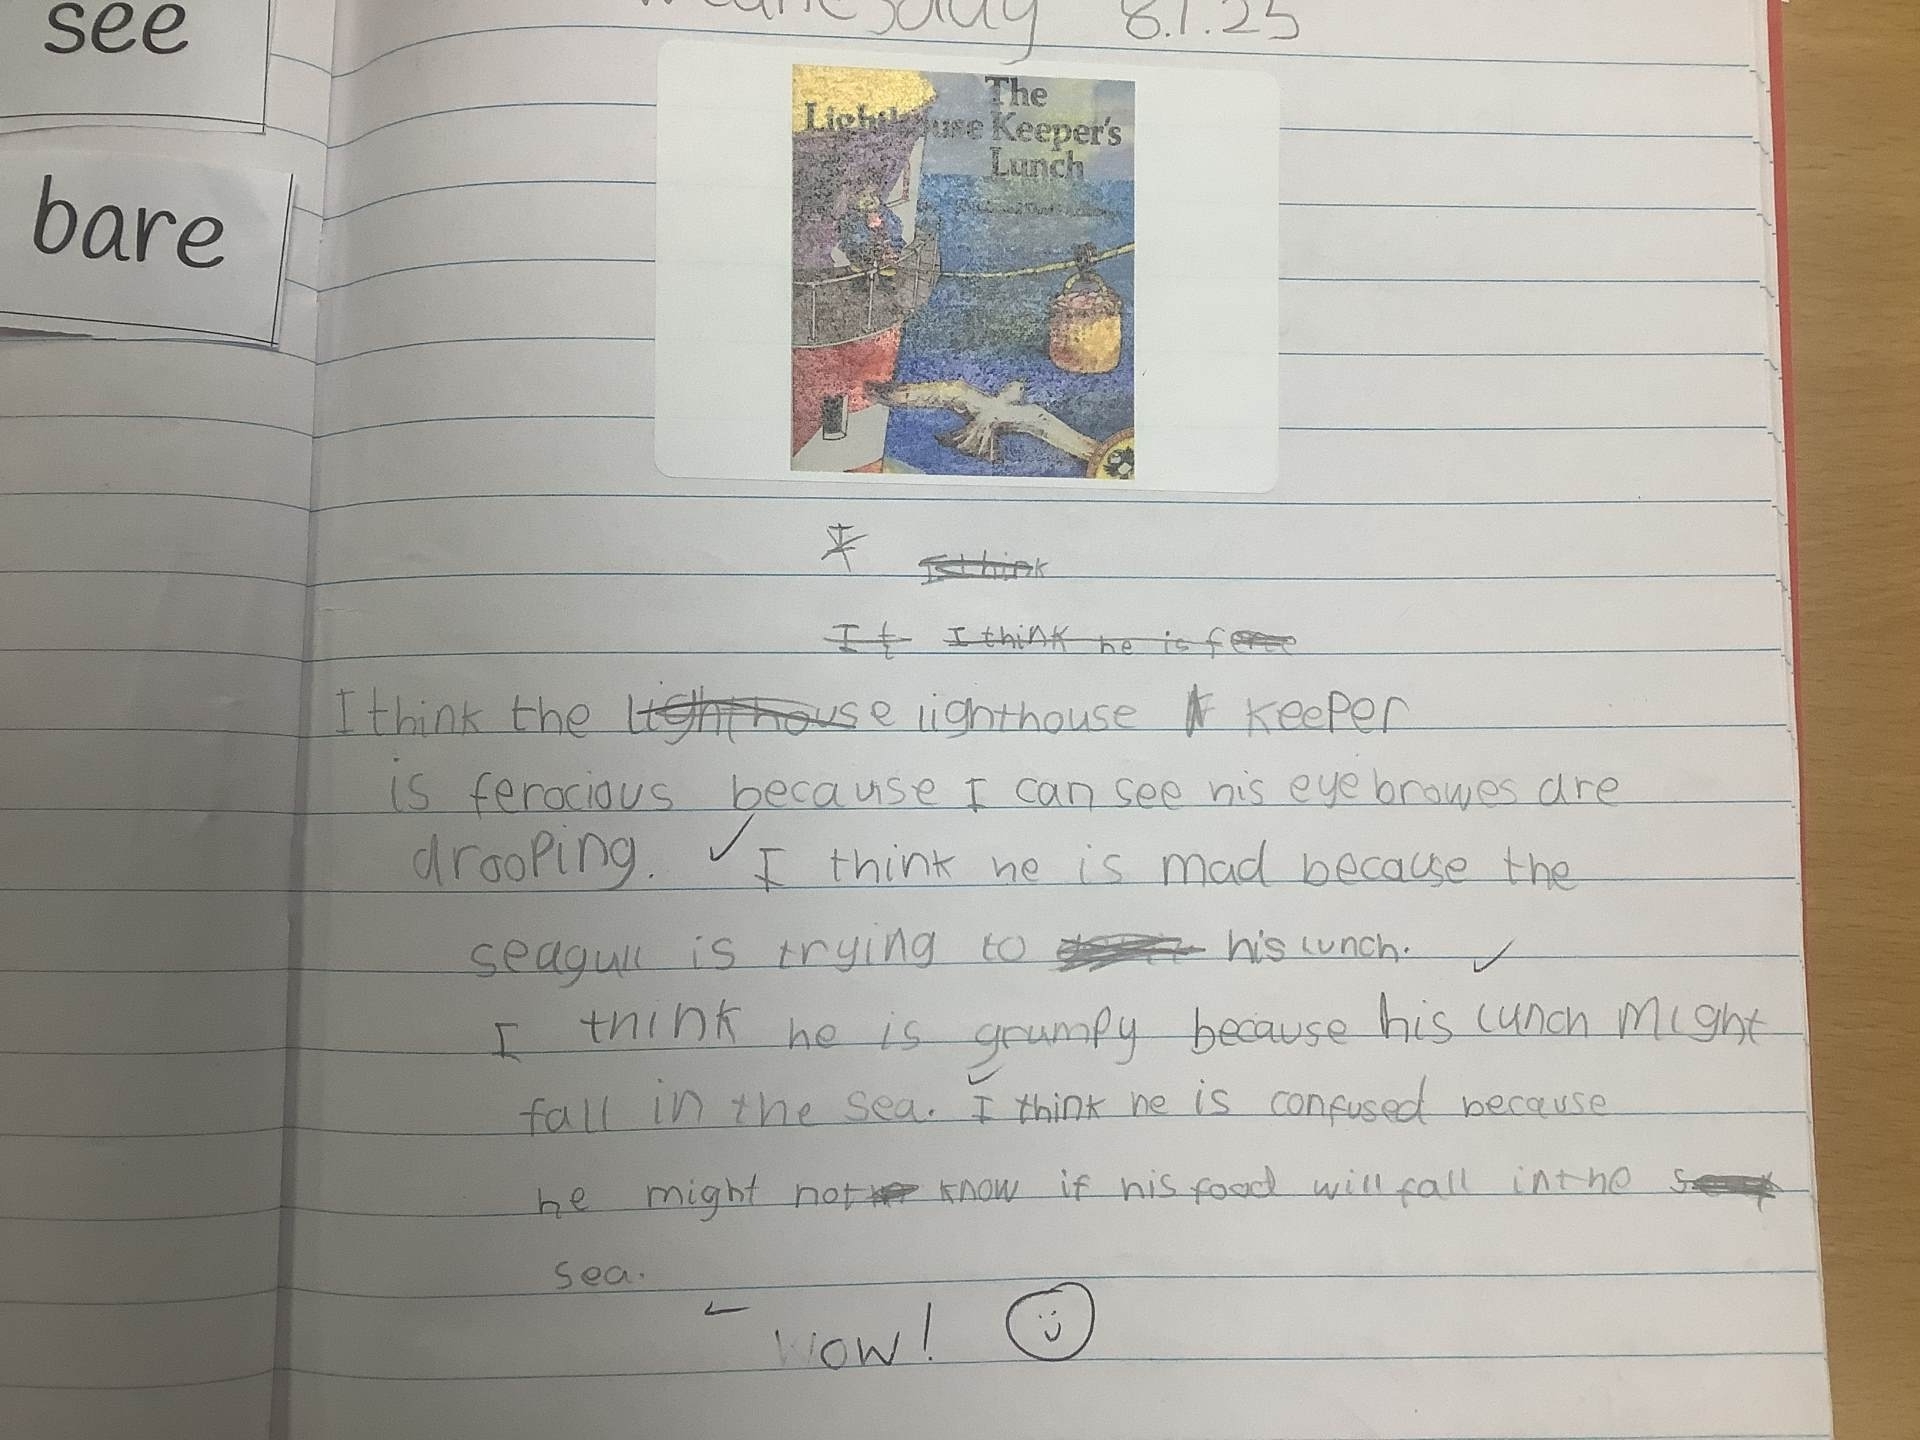 see
bare
Wednesday 8.1.25
The
Lighthouse Keeper's
Lunch
I
I think
It I think he is
I think the lighthouse lighthouse keeper
is ferocious because I can see his eyebrowes are
drooping. I think he is mad because the
seagull is trying to his lunch.
I think he is grumpy because his lunch might
fall in the sea. I think he is confused because
he might not know if his food will fall in the
sea.
Wow!